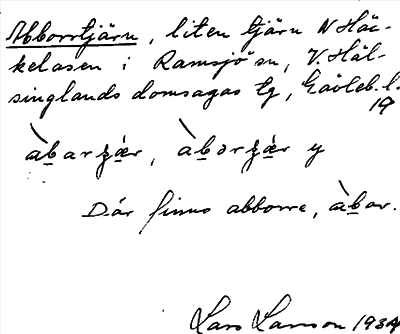 Abborrtjärn, liten tjärn N Häc-
kelasen i Ramsjö sn, V. Häl-
singlands domsagas tg, Gävleb. l.
19
àbarʒǽr, àbɔrʒǽr y
Där finns abborre, àbar.
Lars Larsson 1934